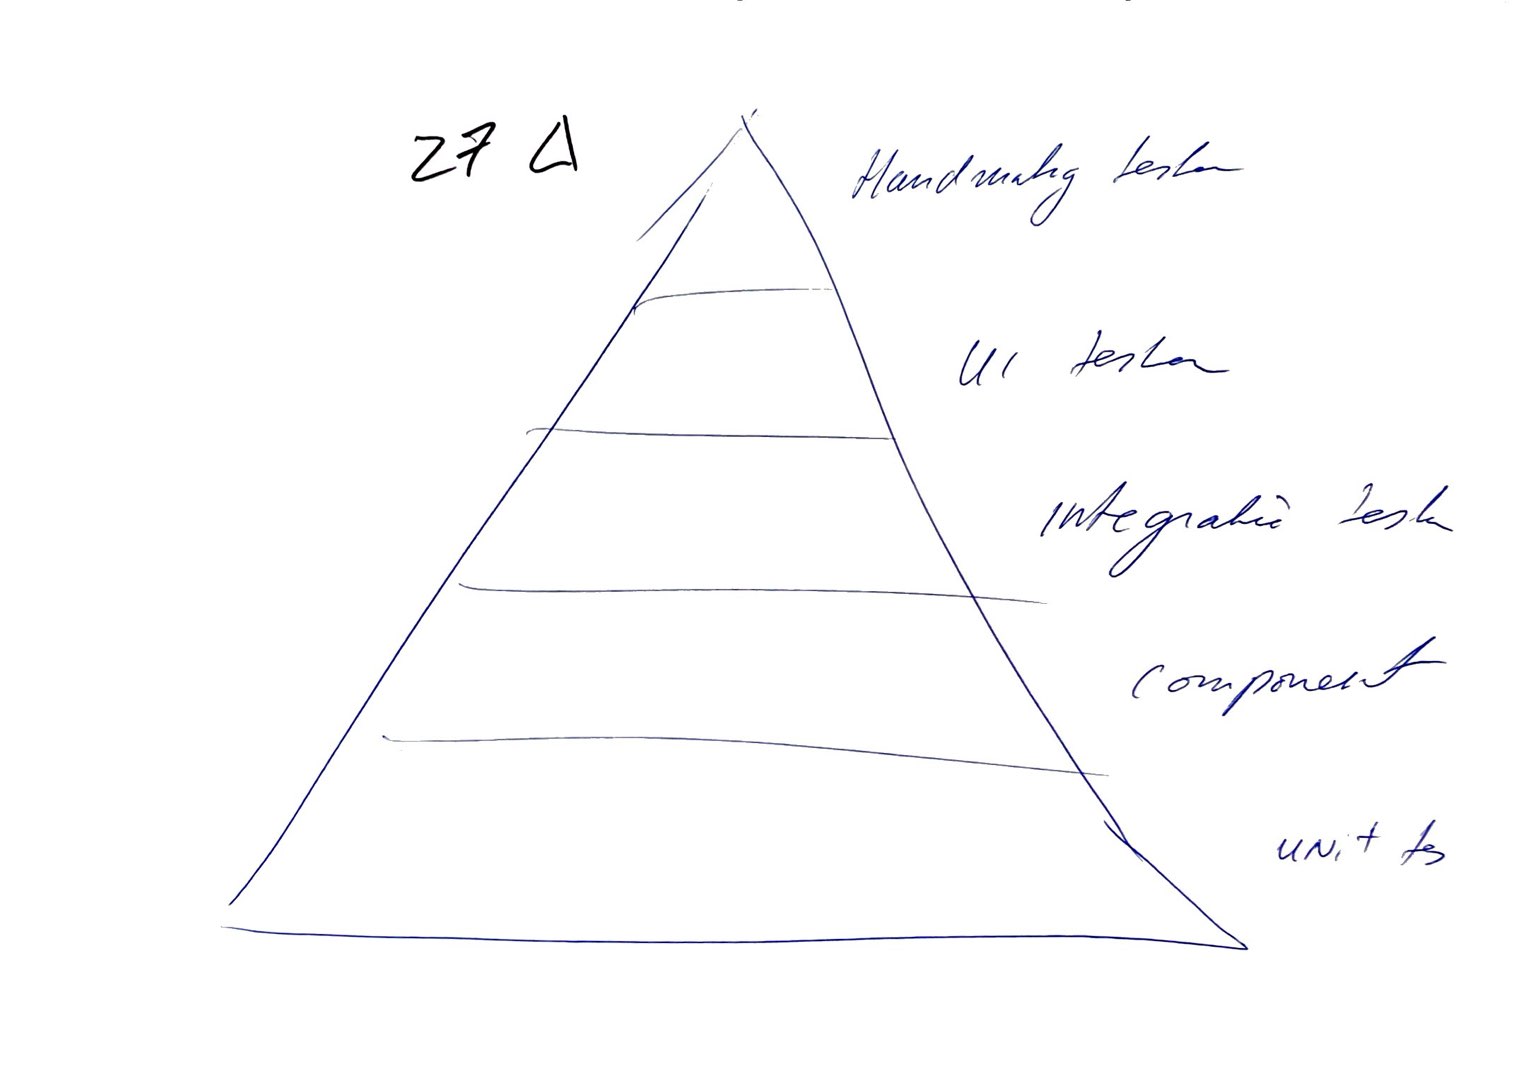 27 Δ
Handmatig testen
UI testen
Integratie testen
Component
UNit tes